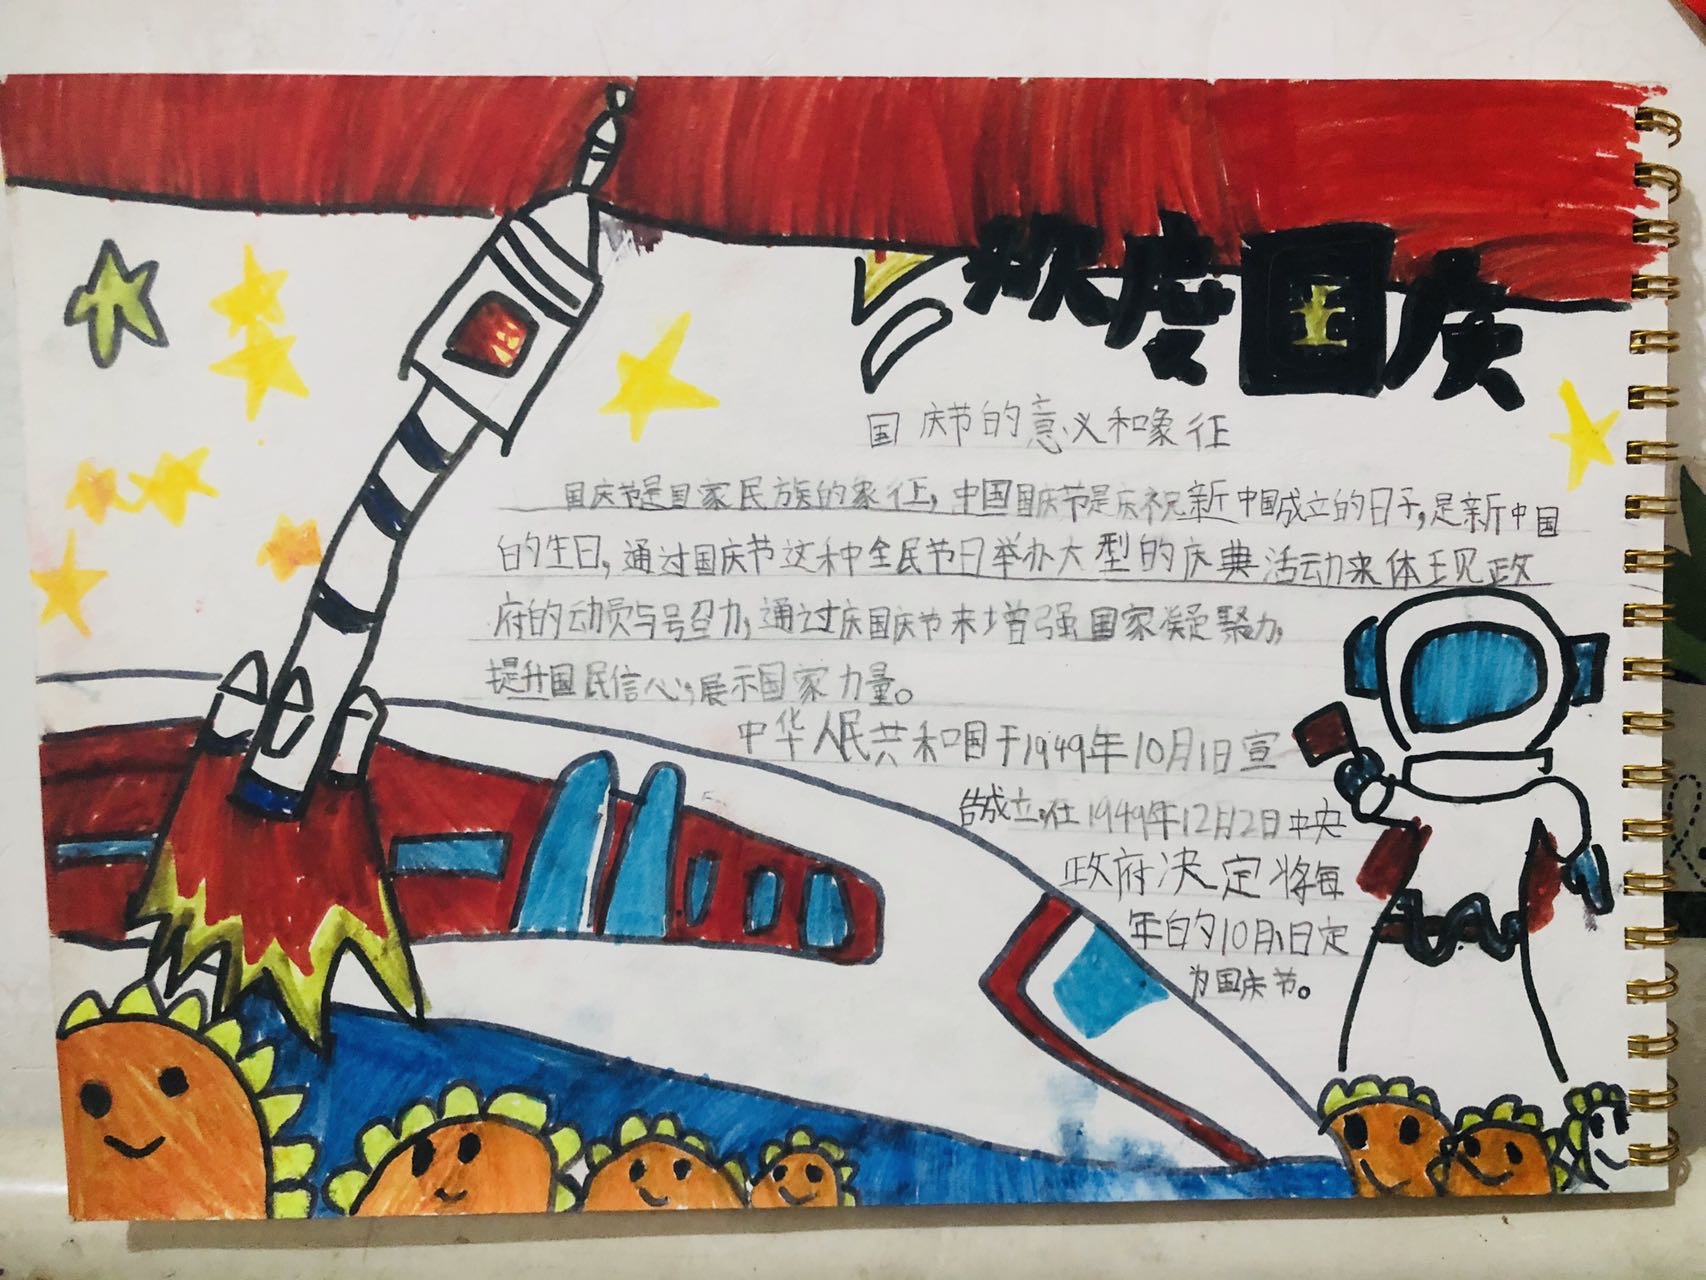 欢度国庆
国庆节的意义和象征
国庆节是国家民族的象征，中国国庆节是庆祝新中国成立的日子，是新中国
的生日，通过国庆节这种全民节日举办大型的庆典活动来体现政
府的动员与号召力，通过庆国庆节来增强国家凝聚力，
提升国民信心，展示国家力量。
中华人民共和国于1949年10月1日宣
告成立，在1949年12月2日中央
政府决定将每
年的10月1日定
为国庆节。